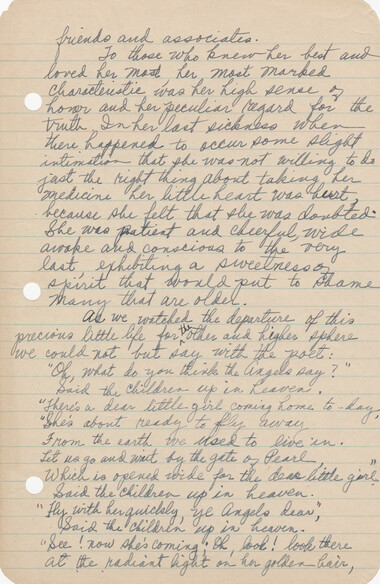 friends and associates.
To those who knew her best and
loved her most, her most marked
characteristic was her high sense of
honor and her peculiar regard for the
truth. In her last sickness when
there happened to occur some slight
intimation that she was not willing to do
just the right thing about taking her
medicine her little heart was hurt,
because she felt that she was doubted.
She was patient and cheerful, wide
awake and conscious to the very
last, exhibiting a sweetness of
spirit that would put to shame
many that are older.
As we watched the departure of this
precious little life for the other and higher sphere
we could not but say with the poet:
"Oh, what do you think the Angels say?"
Said the children up in heaven.
"There's a dear little girl coming home to-day,
"She's about ready to fly away
From the earth we used to live in.
Let us go and wait by the gate of Pearl,
Which is opened wide for the dear little girl"
Said the children up in heaven.
"Fly with her quickly ye Angels dear",
Said the children up in heaven.
"See! now she's coming! Oh, look! look there
At the radiant light on her golden hair,